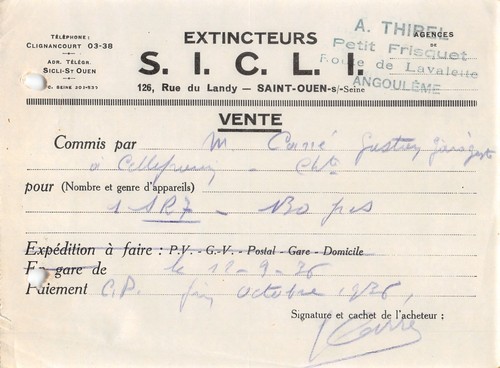 TÉLÉPHONE :
CLIGNANCOURT 03-38
ADR. TÉLÉGR.
SICLI-ST OUEN
C. SEINE 203-931
EXTINCTEURS
S. I. C. L. I.
126, Rue du Landy — SAINT-OUEN-s/-Seine
AGENCES
DE
A. THIREL
Petit Frisquet
Route de Lavalette
ANGOULÊME
VENTE
Commis par M Carré Gustave
à Cellefrouin - Chte
pour (Nombre et genre d'appareils)
1 SR7 - 130 frs
Expédition à faire : P.V. - G.-V. - Postal - Gare - Domicile
En gare de le 12-9-36
Paiement C.P. fin octobre 1936,
Signature et cachet de l'acheteur :
Carré